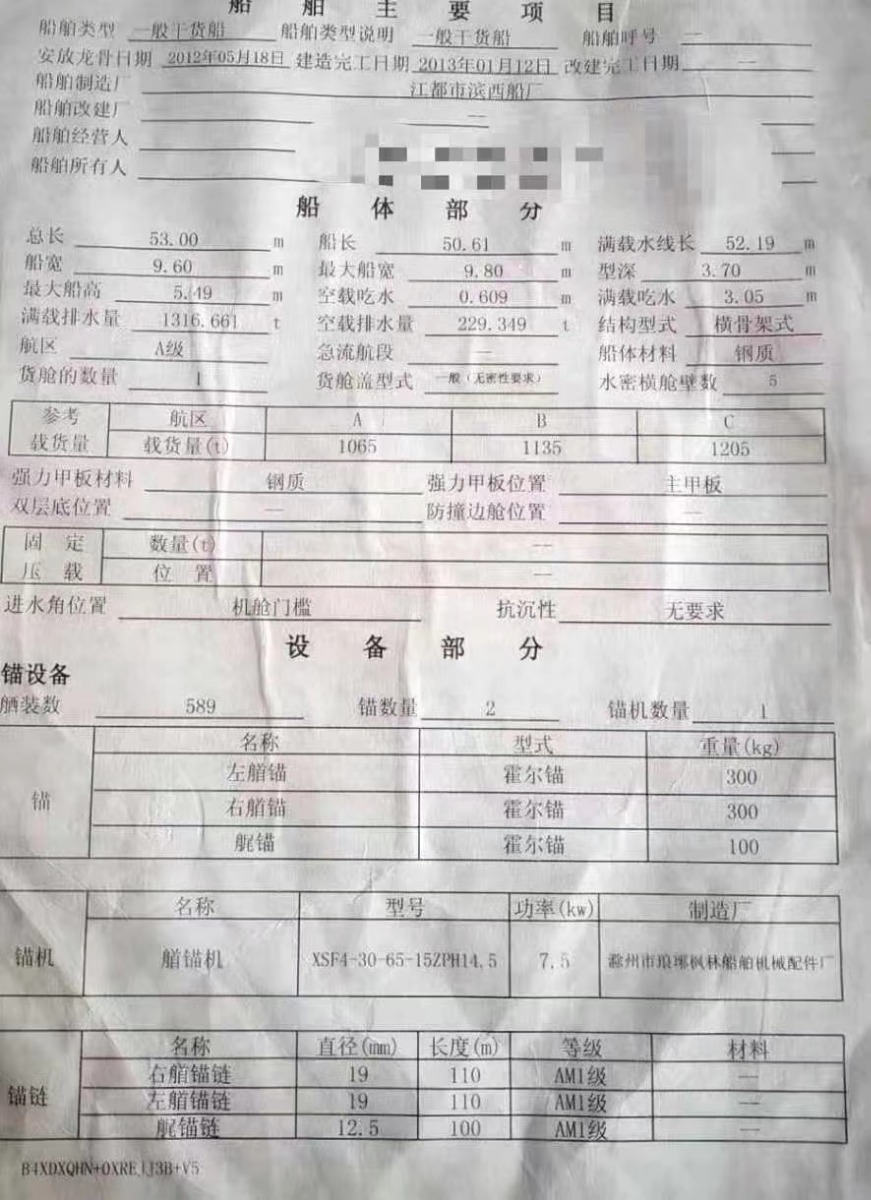 船 舶 主 要 项 目
船舶类型 一般干货船 船舶类型说明 一般干货船 船舶呼号 —
安放龙骨日期 2012年05月18日 建造完工日期 2013年01月12日 改建完工日期 —
船舶制造厂 江都市滨西船厂
船舶改建厂 —
船舶经营人
船舶所有人
船 体 部 分
总长 53.00 m 船长 50.61 m 满载水线长 52.19 m
船宽 9.60 m 最大船宽 9.80 m 型深 3.70 m
最大船高 5.49 m 空载吃水 0.609 m 满载吃水 3.05 m
满载排水量 1316.661 t 空载排水量 229.349 t 结构型式 横骨架式
航区 A级 急流航段 — 船体材料 钢质
货舱的数量 1 货舱盖型式 一般（无密性要求） 水密横舱壁数 5
参考 航区 A B C
载货量 载货量(t) 1065 1135 1205
强力甲板材料 钢质 强力甲板位置 主甲板
双层底位置 — 防撞边舱位置 —
固 定 数量(t) —
压 载 位 置 —
进水角位置 机舱门槛 抗沉性 无要求
设 备 部 分
锚设备
舾装数 589 锚数量 2 锚机数量 1
名称 型式 重量(kg)
左艏锚 霍尔锚 300
锚 右艏锚 霍尔锚 300
艉锚 霍尔锚 100
名称 型号 功率(kw) 制造厂
锚机 艏锚机 XSF4-30-65-15ZPH14.5 7.5 滁州市琅琊枫林船舶机械配件厂
名称 直径(mm) 长度(m) 等级 材料
右艏锚链 19 110 AM1级 —
锚链 左艏锚链 19 110 AM1级 —
艉锚链 12.5 100 AM1级 —